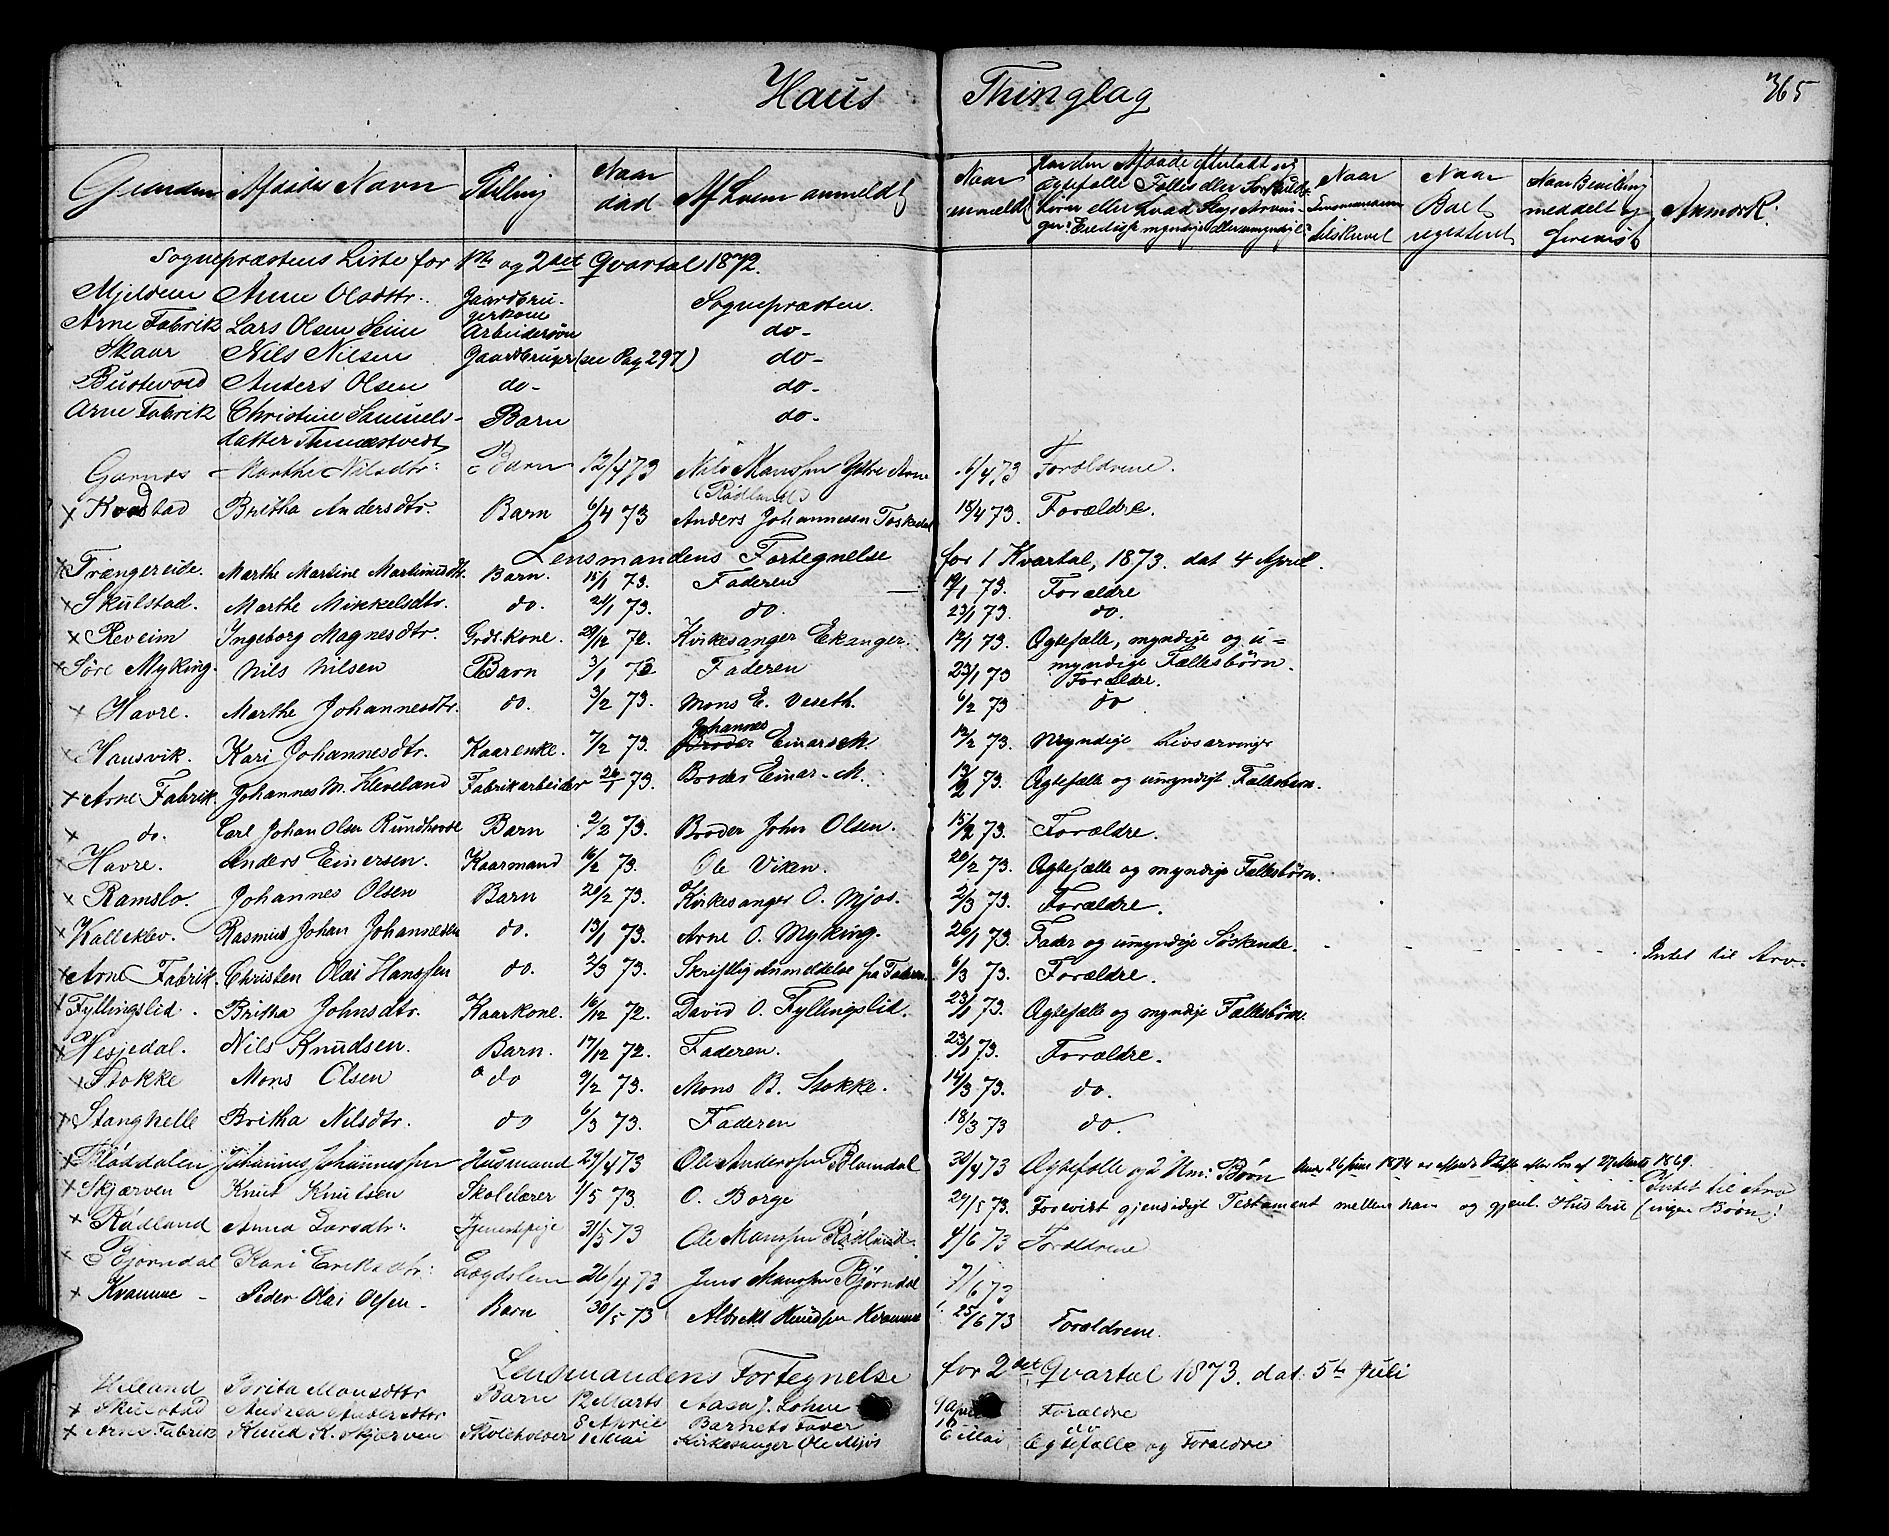 Haus Thinglag 365
Gaarden Afdødes Navn Stilling Naar død Af hvem anmeldt Naar anmeldt Har den Afdøde efterladt sig Ægtefælle Fælles eller Særkulds- børn eller hvad Slags Arvin- ger: Eredige myndige eller umyndige Naar tilskrevet Naar Boet registeret Naar Bevilling meddelt og forevist Anmærk:
Sognepræstens Liste for 1ste og 2det Qvartal 1872.
Mjeldem Anne Olsdtr. Gaardbru- gerkone Sognepræsten.
Arne Fabrik Lars Olsen Seim Arbeidersøn do-
Skaar Nils Nilsen Gaardbruger (see Pag 297) do-
Bustevold Anders Olsen do- do-
Arne Fabrik Christine Samuels- Barn do-
datter Tunæstvedt
Garnæs - Marthe Nilsdtr: Barn 12/4 73 Nils Monssen Ytre Arne 16/4 73 Forældrene.
(Rødland)
x Kvastad Britha Andersdtr. Barn 6/4 73 Anders Johannessen Toskedal 15/4 73. Forældre.
Lensmandens Fortegnelse for 1 Kvartal, 1873. dat 4 April.
x Trængereide. Marthe Martine Martinusdtr. Barn. 15/1 73. Faderen 19/1 73. Forældre
x Skulstad. Marthe Mikkelsdtr. do. 21/1 73. do. 23/1 73. do.
x Reveim Ingeborg Magnesdtr. Grdb.kone. 29/12 72. Kirkesanger Ekanger. 12/1 73. Ægtefælle, myndige og u=
myndige Fællesbørn.
x Søre Myking. Nils Nilsen Barn 3/1 73 Faderen 23/1 73 Forældre.
x Havre. Marthe Johannesdtr. do. 3/2 73. Mons E. Veseth. 6/2 73 do
x Hausvik. Kari Johannesdtr. Kaarenke. 7/2 73. Johannes Einarsen. 12/2 73. Myndige Livsarvinger
x Arne Fabrik. Johannes M. Kleveland Fabrikarbeider 26/1 73. Broder Einar M. 13/2 73. Ægtefælle og umyndigt Fællesbarn.
x do. Carl Johan Olsen Rundhovde Barn 2/2 73. Broder John Olsen. 15/2 73. Forældre.
x Havre. Anders Einersen. Kaarmand 16/2 73. Ole Viken. 20/2 73. Ægtefælle og myndige Fællesbørn.
x Ramslo. Johannes Olsen Barn 20/2 73. Kirkesanger O. Mjøs. 2/3 73. Forældre.
x Kalleklev. Rasmus Johan Johannesen do. 13/1 73. Arne O. Myking. 26/1 73. Fader og umyndige Søskende. - - - - - - Intet til Arv.
x Arne Fabrik. Christen Olai Hanssen do. 2/3 73. Skriftlig Anmeldelse fra Faderen 6/3 73. Forældre.
x Fyllingslid. Britha Johnsdtr. Kaarkone. 16/12 72. David O. Fyllingslid. 23/1 73. Ægtefælle og myndige Fællesbørn.
x Vesjedal. Nils Knudsen. Barn. 17/12 72. Faderen. 23/1 73. Forældre.
x Stokke Mons Olsen do 9/2 73. Mons B. Stokke. 14/3 73. do.
x Stanghelle Britha Nilsdtr. do 6/3 73. Faderen 18/3 73 do.
x Fløddalen Johannes Johannessen Husmand 29/4 73 Ole Anderssen Blomdal 30/4 73 Ægtefælle og 2 Um: Børn
x Skjærven Knut Knutsen Skolelærer 1/5 73. O. Borge 27/5 73. Forevist gjensidigt Testament mellem ham og gjenl. Hustru (ingen Børn) Intet til Arv
x Rødland Anna Larsdtr: Tjenestepige 31/5 73 Ole Monssen Rødland. 4/6 73 Forældrene
x Bjørndal Kari Eriksdtr: Lægdslem 26/4 73 Jens Monssen Bjørndal 7/6 73
x Kvamme - Peder Olai Olsen - Barn 30/5 73 Albrekt Knudsen Kvamme 25/6 73 Forældrene.
Lensmandens Fortegnelse for 2det Qvartal 1873. dat. 5te Juli
Helland Brita Monsdtr Barn 12 Marts Aasa J. Lohne 9 April Forældre
x Skulstad Andrea Andersdtr 8 April Barnets Fader 16 do
x Arne Fabrik Knud K. Skjærven Skoleholder 1 Mai Kirkesanger Ole Mjøs 6 Mai Ægtefælle og Forældre